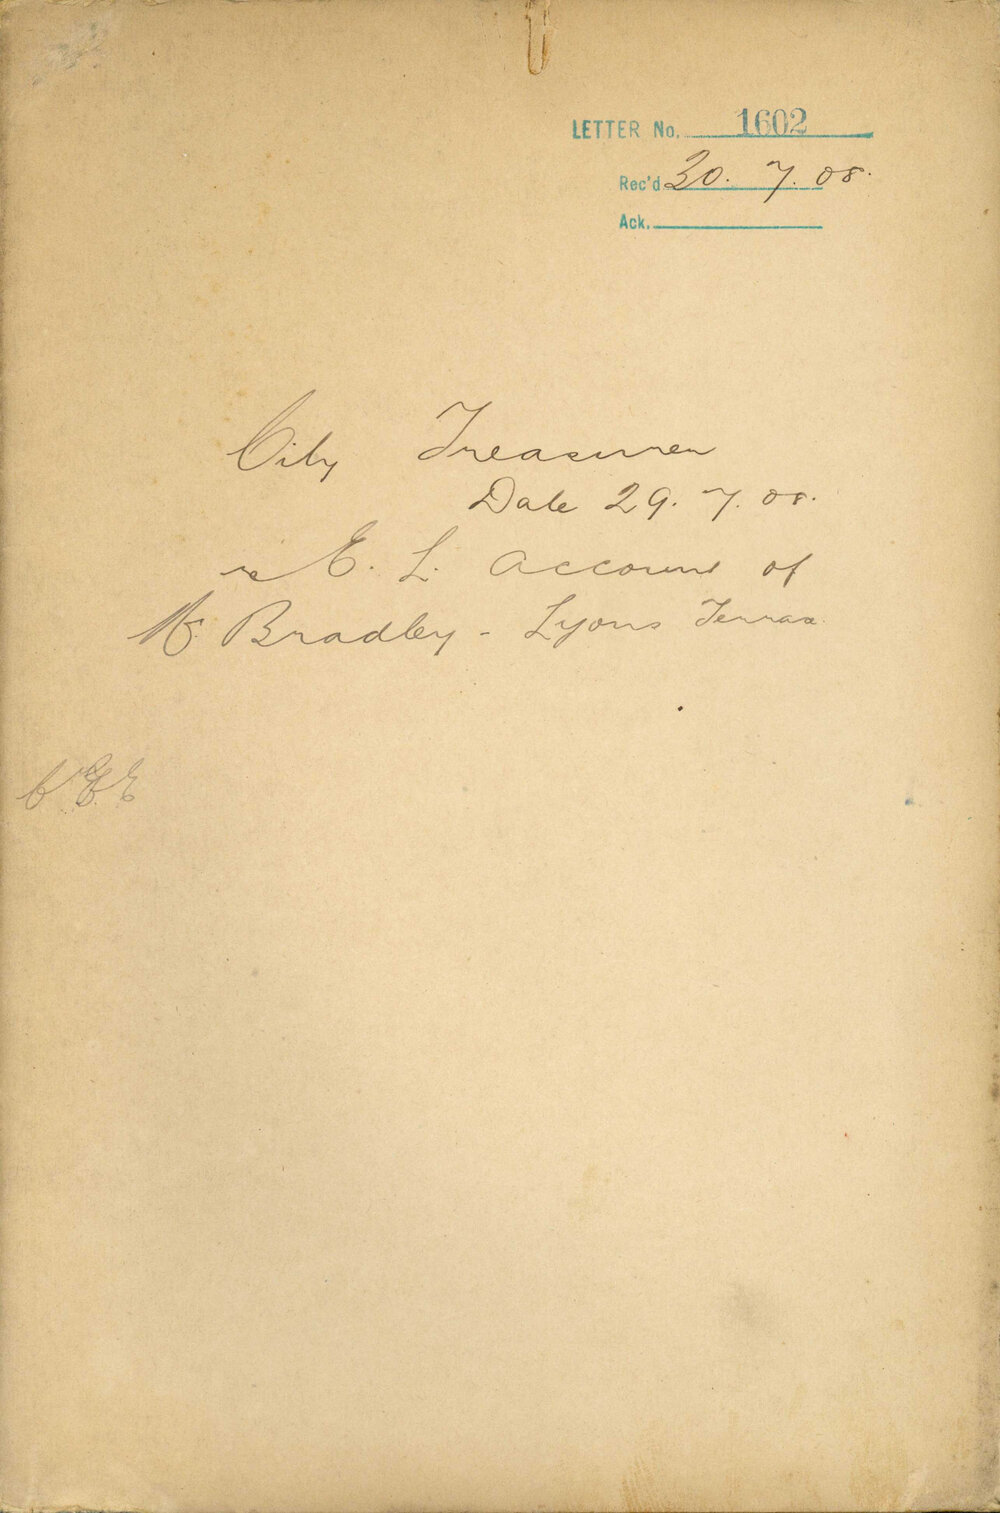 LETTER No. 1602
Rec'd 30. 7. 08.
Ack.
City Treasurer
Date 29. 7. 08.
re E. L. Account of
Mr Bradley - Lyons Terrace
C.E.E